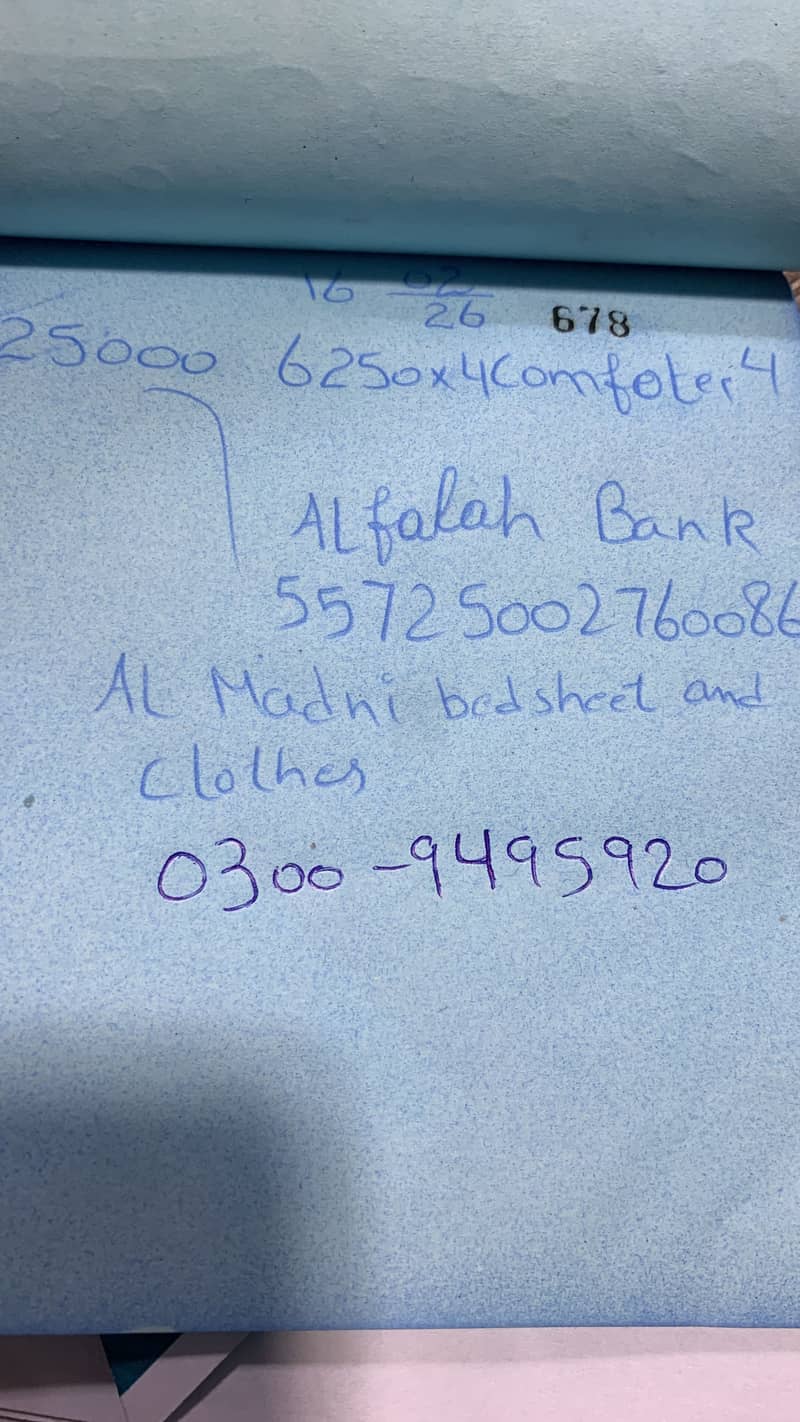 16 02/26 678
25000 6250x4 Comfoter 4
ALfalah Bank
55725002760086
AL Madni bedsheet and
Clothes
0300-9495920